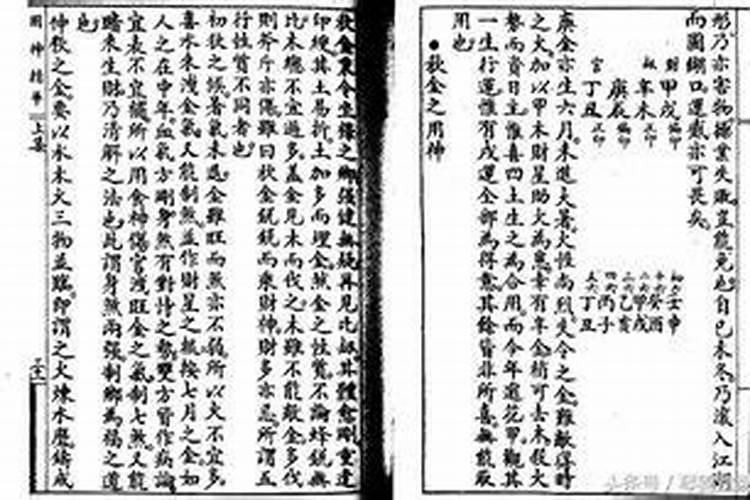 形乃亦害物操業失敗豈能免也自己未冬乃濃入江湖
而圖餬口運蹇亦可畏矣
財 甲戌 偏印
劫 辛未 正印
庚辰 偏印
官 丁丑 正印
壬申
癸酉
甲戌
乙亥
丙子
丁丑
庚金亦生六月未進大暑火性尚烈失令之金難敵得時
之火加以甲木財星助火為患幸有年金稍可去木殺火
勢而資日主惟喜四土生之為合用而今年逾花甲觀其
一生行運惟有戌運全部為得意其餘皆非所喜無能取
用也
●秋金之用神
秋金秉令生之鄉強健無疑再見比劫其體愈剛重逢
印綬其土易折土加多而埋金金之性質不論鋒銳無
比木總不宜過多蓋金見木而伐之木雖不能敵金多伐
則斧斤亦傷雖曰秋金銳銳而乘財神財多亦忌所謂五
行性質不同者也
初秋之候暑氣未退金雖旺而煞亦不弱所以火不宜多
喜水來洩金氣又能制煞並作財星之根按七月之金如
人之在中年血氣方剛身煞有對峙之勢雙方皆作病論
宜表不宜緩所以用食神傷官洩旺金之氣制七煞又能
暗來生財乃清解之法也此謂身煞兩強制鄉為福之道
也
仲秋之金要以水木火三物並臨即謂之火煉水磨鑄成
用神精華 上集